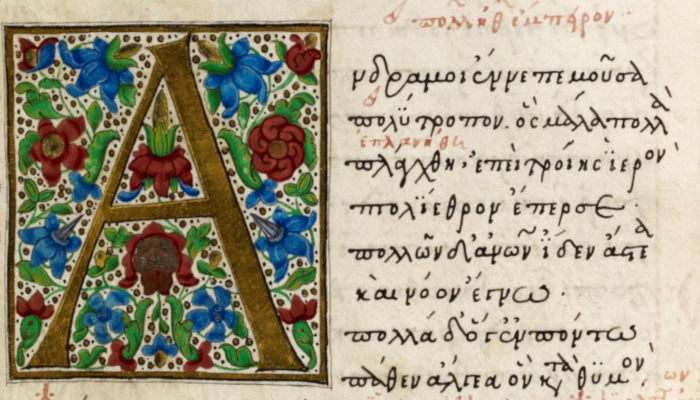 ἔμπειρον
Ανδραμοι ἔννεπε μοῦσα
πολύτροπον. ὃς μάλα πολλὰ
ἐπλανήθη
πλάγχθη· ἐπεὶ τροίης ϊερὸν
πτολίεθρον ἔπερσε·
πολλῶν δ' ἀνῶν ἴδεν ἄστεα
καὶ νόον ἔγνω
πολλὰ δ' ὅγ' ἐν πόντω
πάθεν ἄλγεα ὃν κτὰ θῦμὸν·